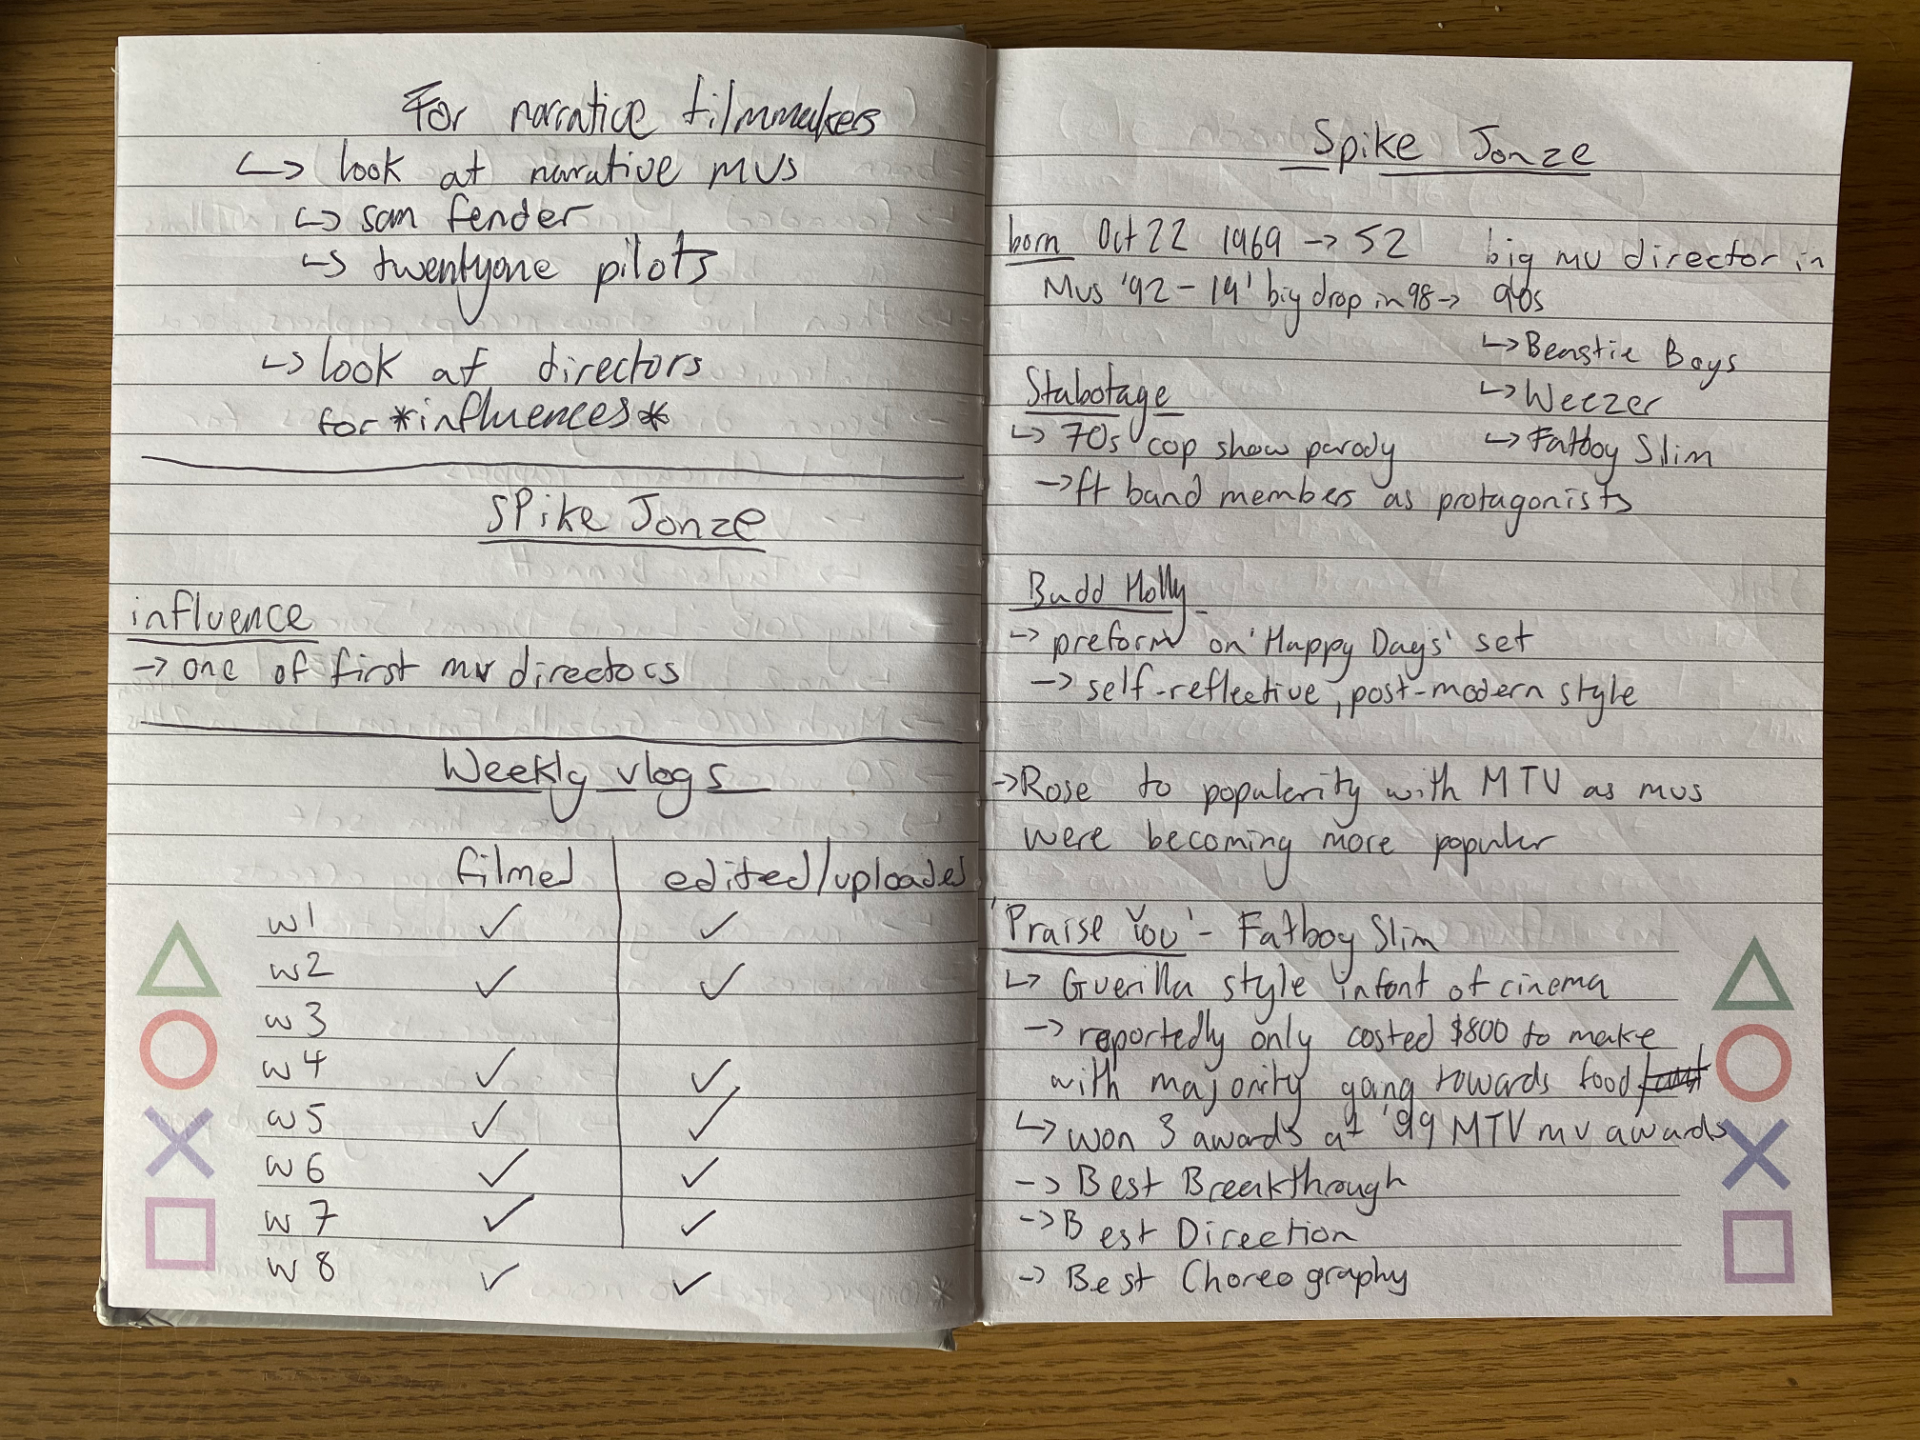 For narrative filmmakers
↳ look at narative mvs
↳ sam fender
↳ twentyone pilots
↳ look at directors
for *influences*
SPike Jonze
influence
→ one of first mv directors
Weekly vlogs
filmed edited/uploaded
w1 ✓ ✓
w2 ✓ ✓
w3
w4 ✓ ✓
w5 ✓ ✓
w6 ✓ ✓
w7 ✓ ✓
w8 ✓ ✓
Spike Jonze
born Oct 22 1969 → 52
Mvs '92 - 19' big drop in 98 →
big mv director in
90s
↳ Beastie Boys
↳ Weezer
↳ Fatboy Slim
Stabotage
↳ 70s cop show parody
→ ft band members as protagonists
Budd Holly
→ preform on 'Happy Days' set
→ self-reflective, post-modern style
→ Rose to popularity with MTV as mvs
were becoming more popular
'Praise You' - Fatboy Slim
↳ Guerilla style infont of cinema
→ reportedly only costed $800 to make
with majority going towards food
↳ won 3 awards at '99 MTV mv awards
→ Best Breakthrough
→ Best Direction
→ Best Choreography